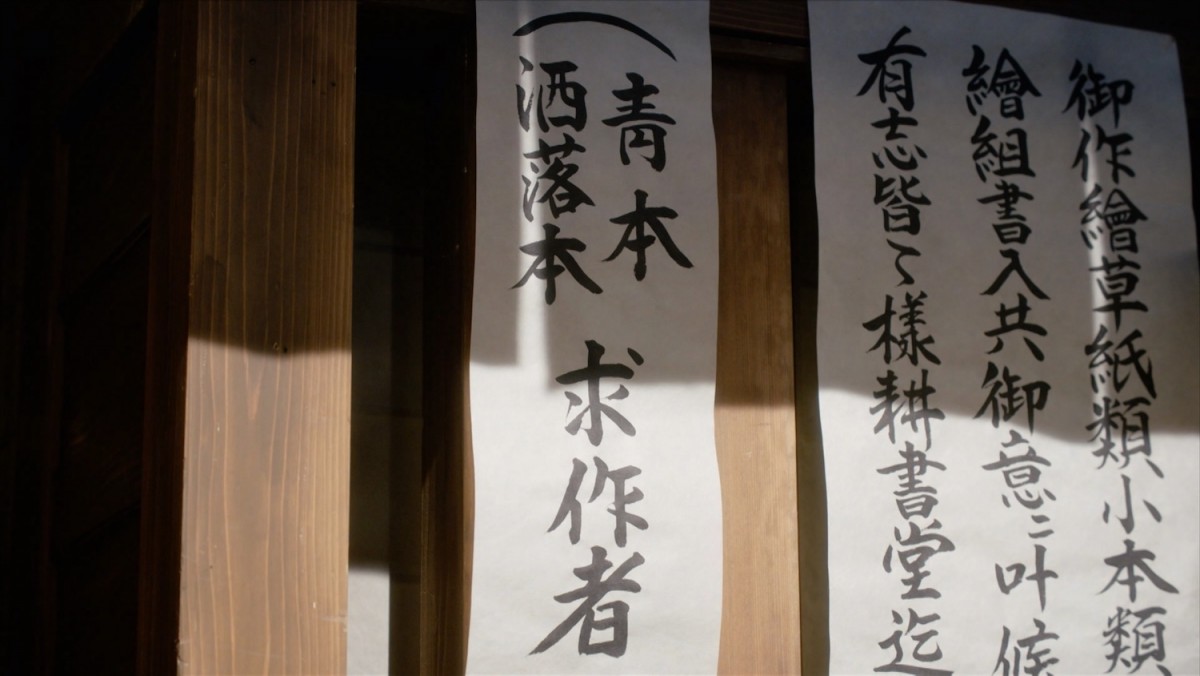 御作繪草紙類、小本類
繪組書入共御意ニ叶候
有志皆〻様耕書堂迄
（青本
洒落本
求作者